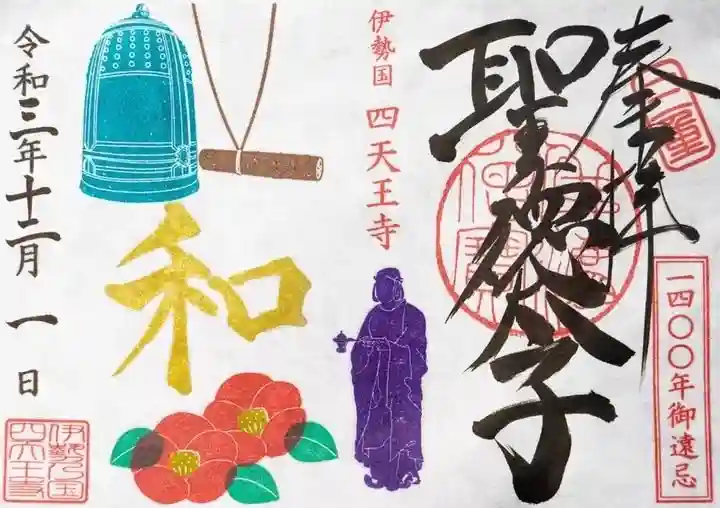 奉拝
三重
聖徳太子
一四〇〇年御遠忌
伊勢国 四天王寺
和
令和三年十二月一日
伊勢乃国
四天王寺